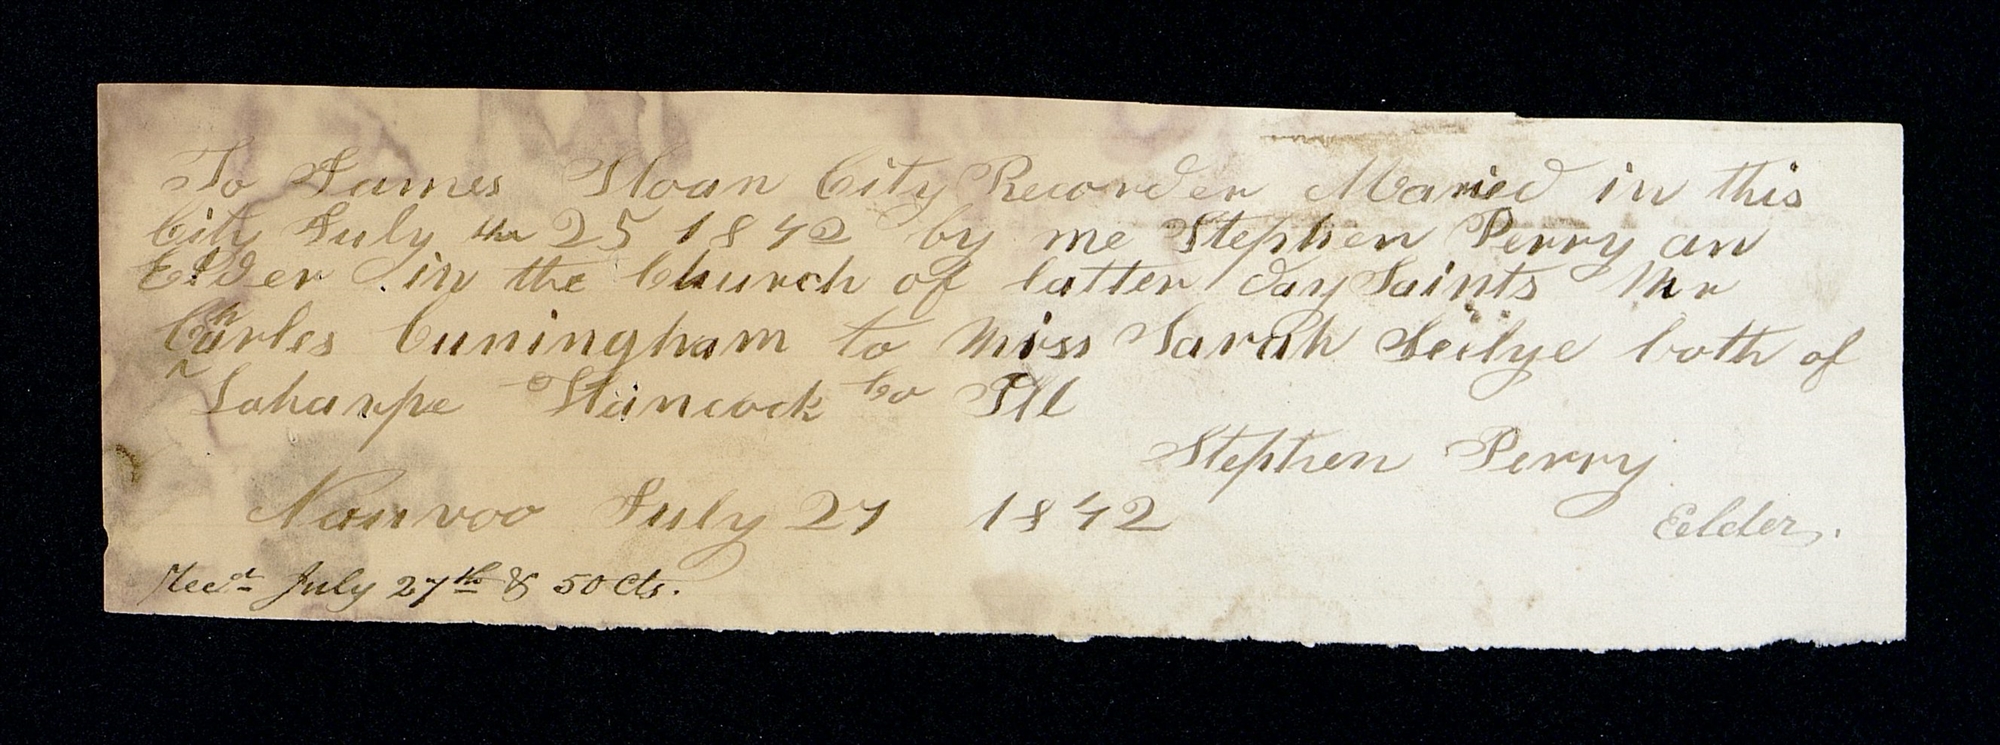 To James Sloan City Recorder Maried in this
City July the 25 1842 by me Stephen Perry an
Elder in the Church of latter day Saints Mr
Charles Cuningham to Miss Sarah Seelye both of
Laharpe Hancock Co Ill
Stephen Perry
Nauvoo July 27 1842
Eelder.
Recd. July 27th & 50 Cts.